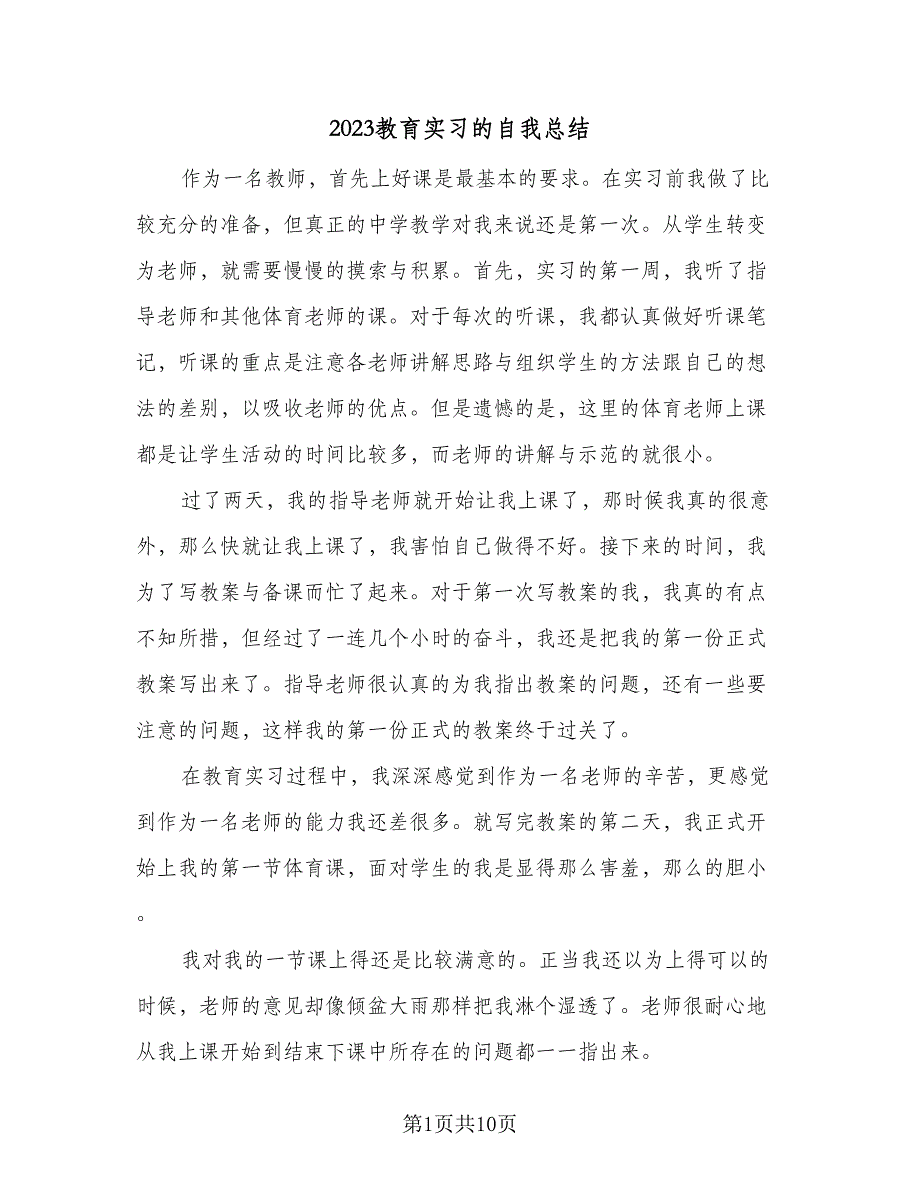 2023教育实习的自我总结
作为一名教师，首先上好课是最基本的要求。在实习前我做了比
较充分的准备，但真正的中学教学对我来说还是第一次。从学生转变
为老师，就需要慢慢的摸索与积累。首先，实习的第一周，我听了指
导老师和其他体育老师的课。对于每次的听课，我都认真做好听课笔
记，听课的重点是注意各老师讲解思路与组织学生的方法跟自己的想
法的差别，以吸收老师的优点。但是遗憾的是，这里的体育老师上课
都是让学生活动的时间比较多，而老师的讲解与示范的就很小。
过了两天，我的指导老师就开始让我上课了，那时候我真的很意
外，那么快就让我上课了，我害怕自己做得不好。接下来的时间，我
为了写教案与备课而忙了起来。对于第一次写教案的我，我真的有点
不知所措，但经过了一连几个小时的奋斗，我还是把我的第一份正式
教案写出来了。指导老师很认真的为我指出教案的问题，还有一些要
注意的问题，这样我的第一份正式的教案终于过关了。
在教育实习过程中，我深深感觉到作为一名老师的辛苦，更感觉
到作为一名老师的能力我还差很多。就写完教案的第二天，我正式开
始上我的第一节体育课，面对学生的我是显得那么害羞，那么的胆小
。
我对我的一节课上得还是比较满意的。正当我还以为上得可以的
时候，老师的意见却像倾盆大雨那样把我淋个湿透了。老师很耐心地
从我上课开始到结束下课中所存在的问题都一一指出来。
第1页共10页